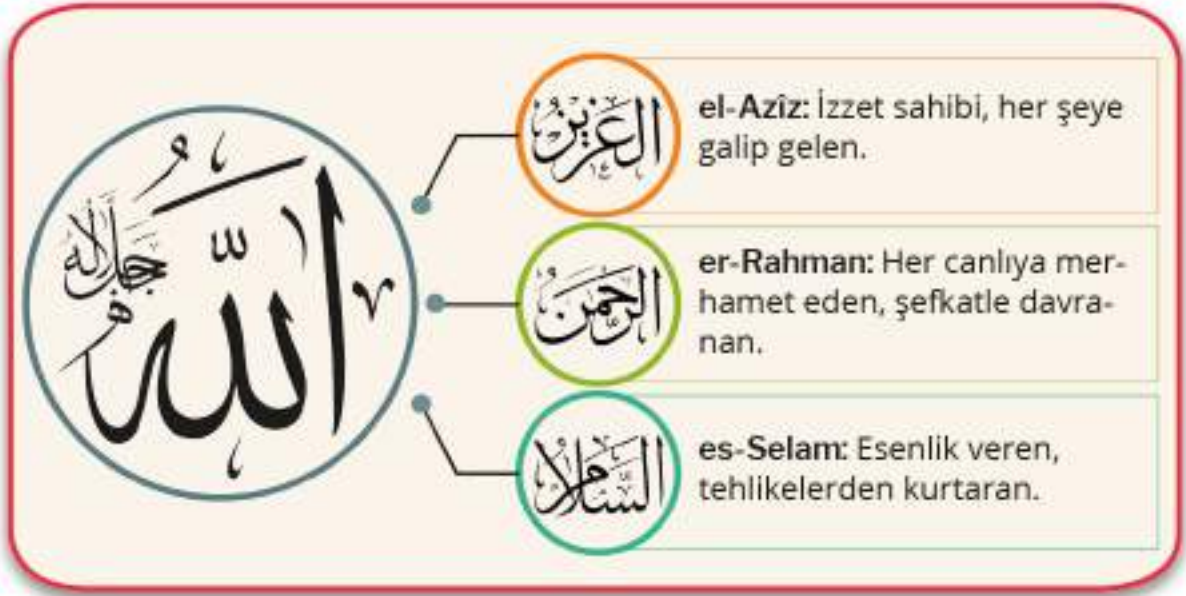 الله
جل جلاله
العزيز
el-Azîz: İzzet sahibi, her şeye
galip gelen.
الرحمن
er-Rahman: Her canlıya mer-
hamet eden, şefkatle davra-
nan.
السلام
es-Selam: Esenlik veren,
tehlikelerden kurtaran.